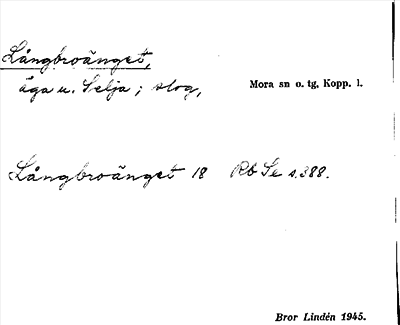 Långbroänget,
äga u. Selja; slog,
Mora sn o. tg, Kopp. l.
Långbroänget 18 Rb Se s.388.
Bror Lindén 1945.